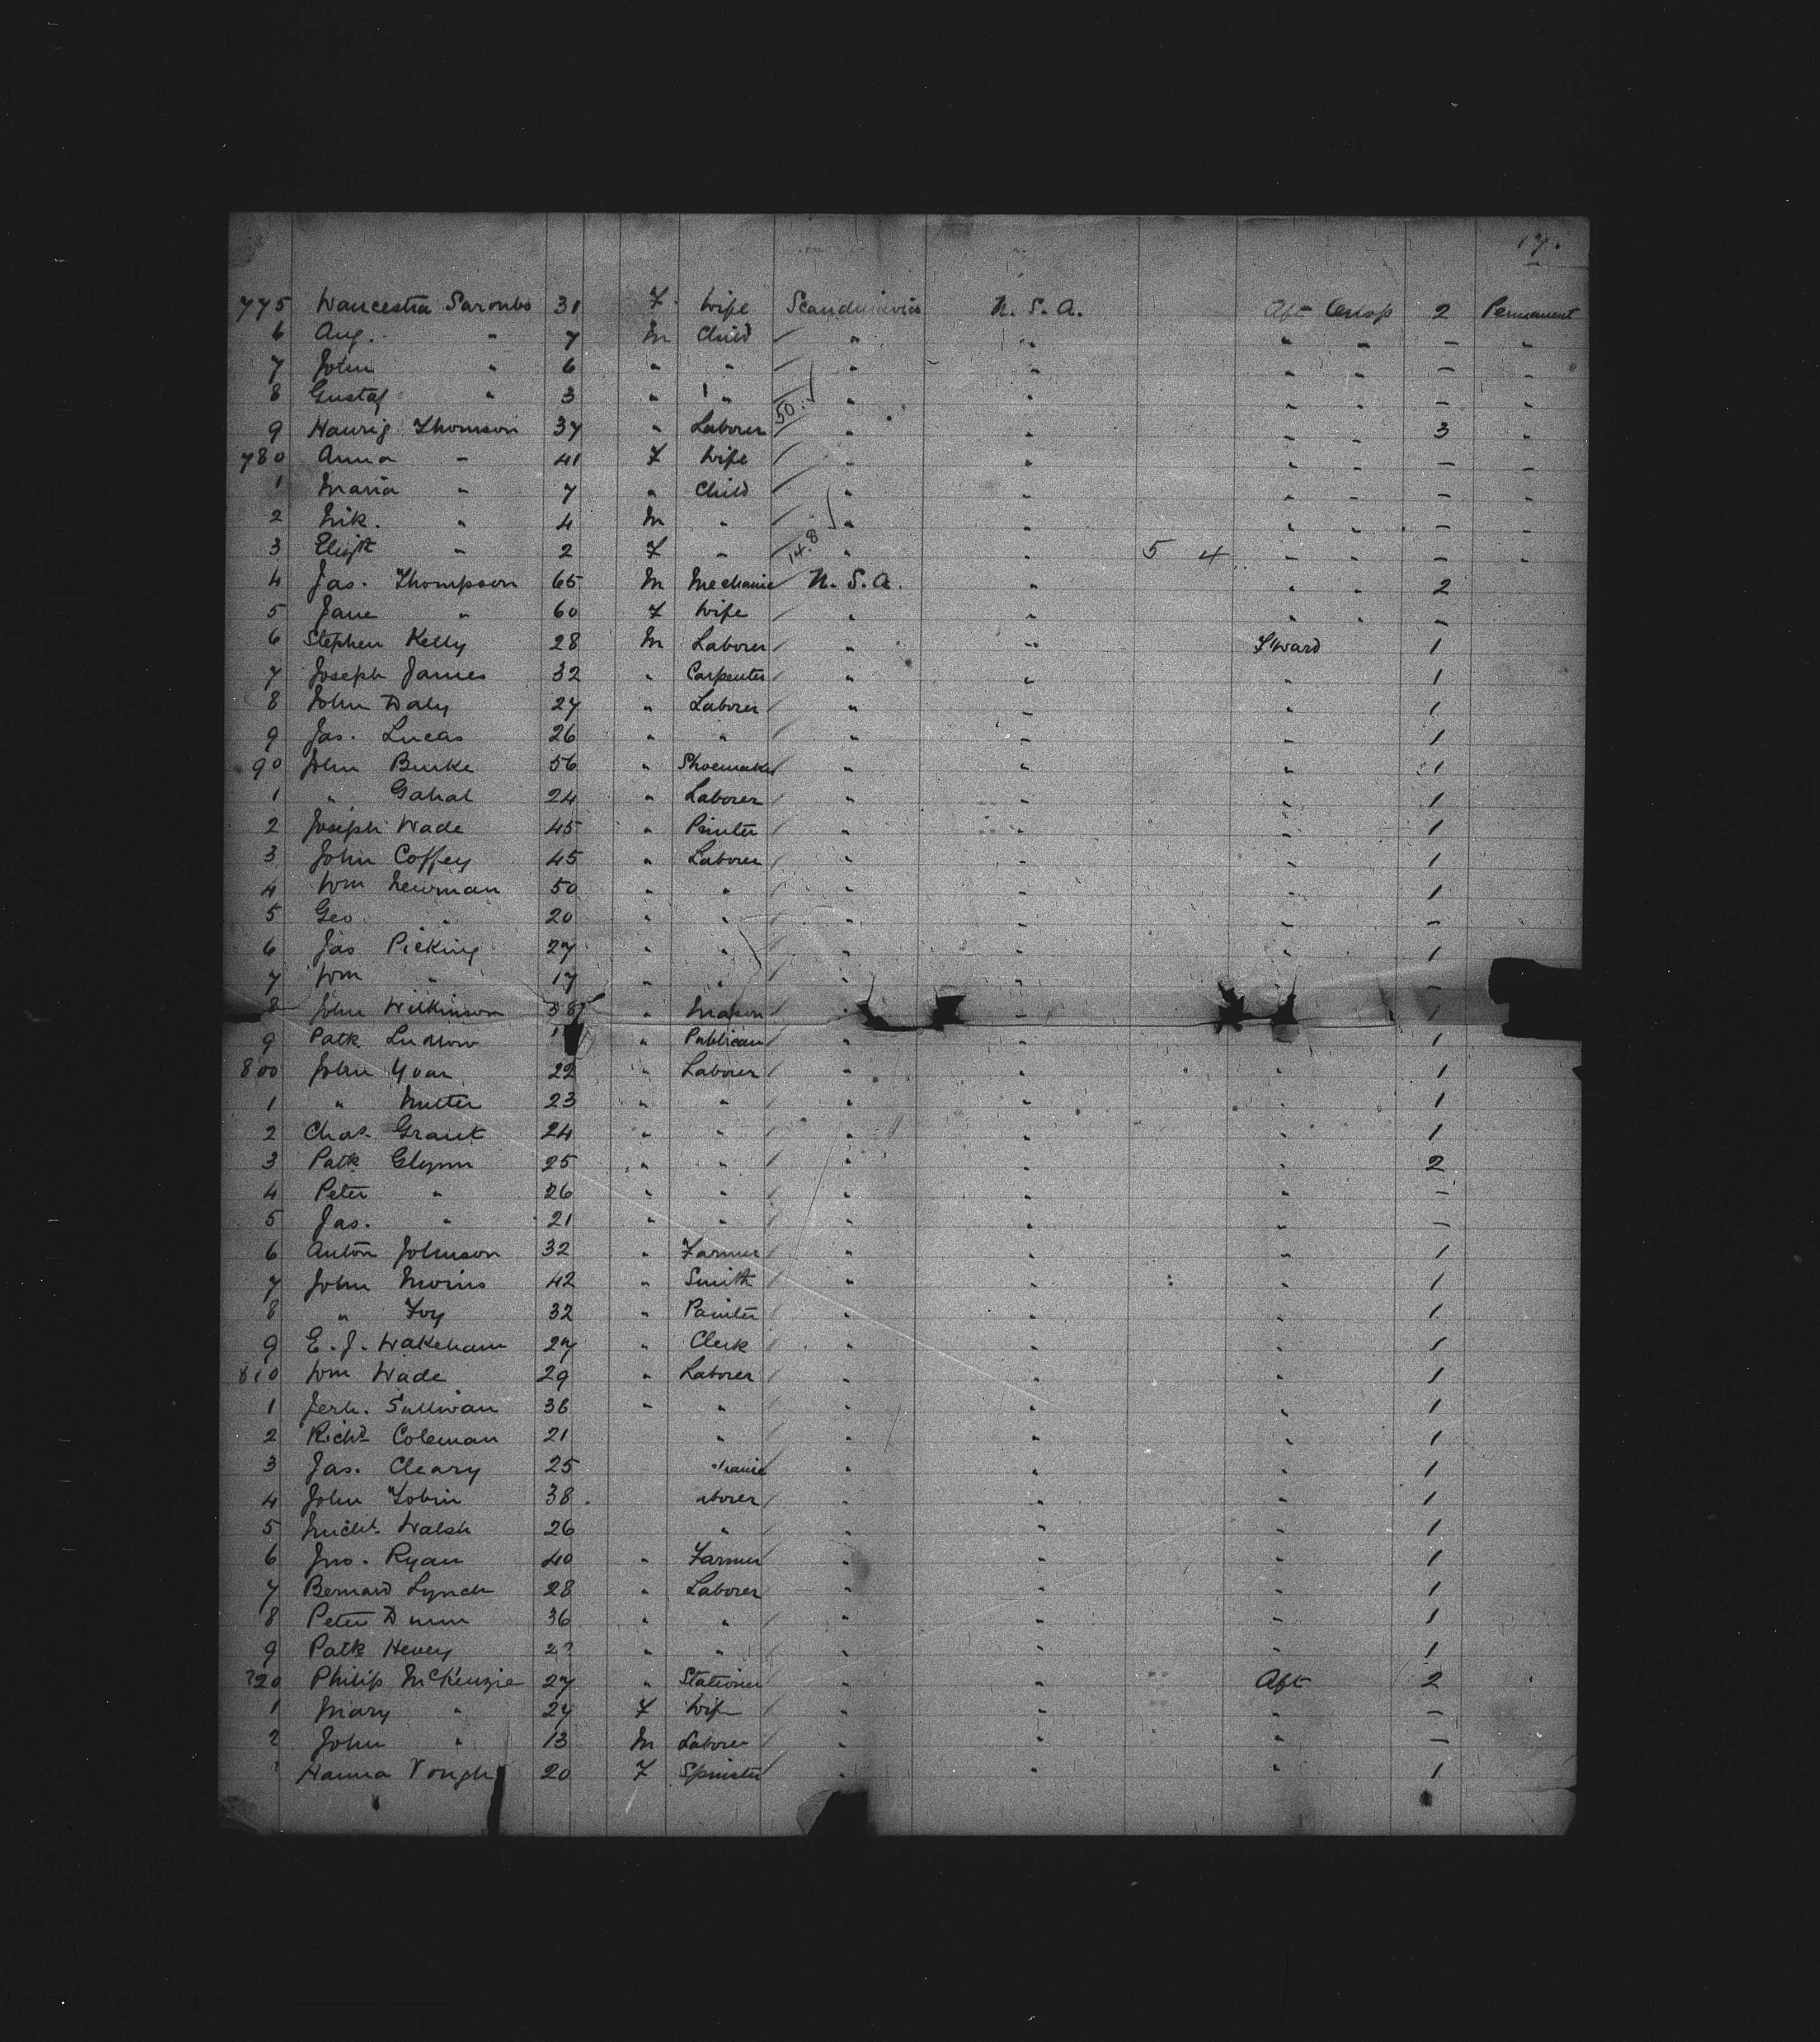 17.
775 Wancestra Saronbs 31 F. Wife Scandinavia U.S.A. Aft Orlop 2 Permanent
6 Aug. " 7 M Child " " " " — "
7 John " 6 " " " " " " — "
8 Gustaf " 3 " " 50. " " " " — "
9 Thomson 37 " Laborer " " " " 3 "
780 Anna " 41 F Wife " " " " — "
1 Maria " 7 " Child " " " " — "
2 Nik. " 4 M " " " " " — "
3 Elizth " 2 F " 14.8 " " 5 4 " " — "
4 Jas. Thompson 65 M Mechanic U.S.A. " " " 2
5 Jane " 60 F Wife " " " " —
6 Stephen Kelly 28 M Laborer " " F'ward 1
7 Joseph James 32 " Carpenter " " " 1
8 John Daly 27 " Laborer " " " 1
9 Jas. Lucas 26 " " " " " 1
90 John Burke 56 " Shoemaker " " " 1
1 " Gahal 24 " Laborer " " " 1
2 Joseph Wade 45 " Printer " " " 1
3 John Coffey 45 " Laborer " " " 1
4 Wm Newman 50 " " " " " 1
5 Geo. " 20 " " " " " —
6 Jas Picking 27 " " " " " 1
7 Wm " 17 " " " "
8 John Wilkinson 38 " Mason " " 1
9 Patk Ludlow " Publican " " 1
800 John 22 " Laborer " " " 1
1 " 23 " " " " " 1
2 Chas. Grant 24 " " " " " 1
3 Patk Glynn 25 " " " " " 2
4 Peter " 26 " " " " " —
5 Jas. " 21 " " " " " —
6 Anton Johnson 32 " Farmer " " " 1
7 John Morris 42 " Smith " " " 1
8 " Foy 32 " Painter " " " 1
9 E. J. Wakeham 27 " Clerk " " " 1
810 Wm Wade 29 " Laborer " " " 1
1 Jerh. Sullivan 36 " " " " " 1
2 Richd Coleman 21 " " " " 1
3 Jas. Cleary 25 " " " 1
4 John Tobin 38 aborer " " " 1
5 Michl. Walsh 26 " " " " 1
6 Jno. Ryan 40 " Farmer " " " 1
7 Bernard Lynch 28 " Laborer " " " 1
8 Peter Dunn 36 " " " " " 1
9 Patk Hevey " " " " " 1
20 Philip McKenzie 27 " Stationer " " Aft 2
1 Mary " 27 F Wife " " " —
2 John " 13 M Laborer " " " —
Hanna Vough 20 F Spinster " " " 1